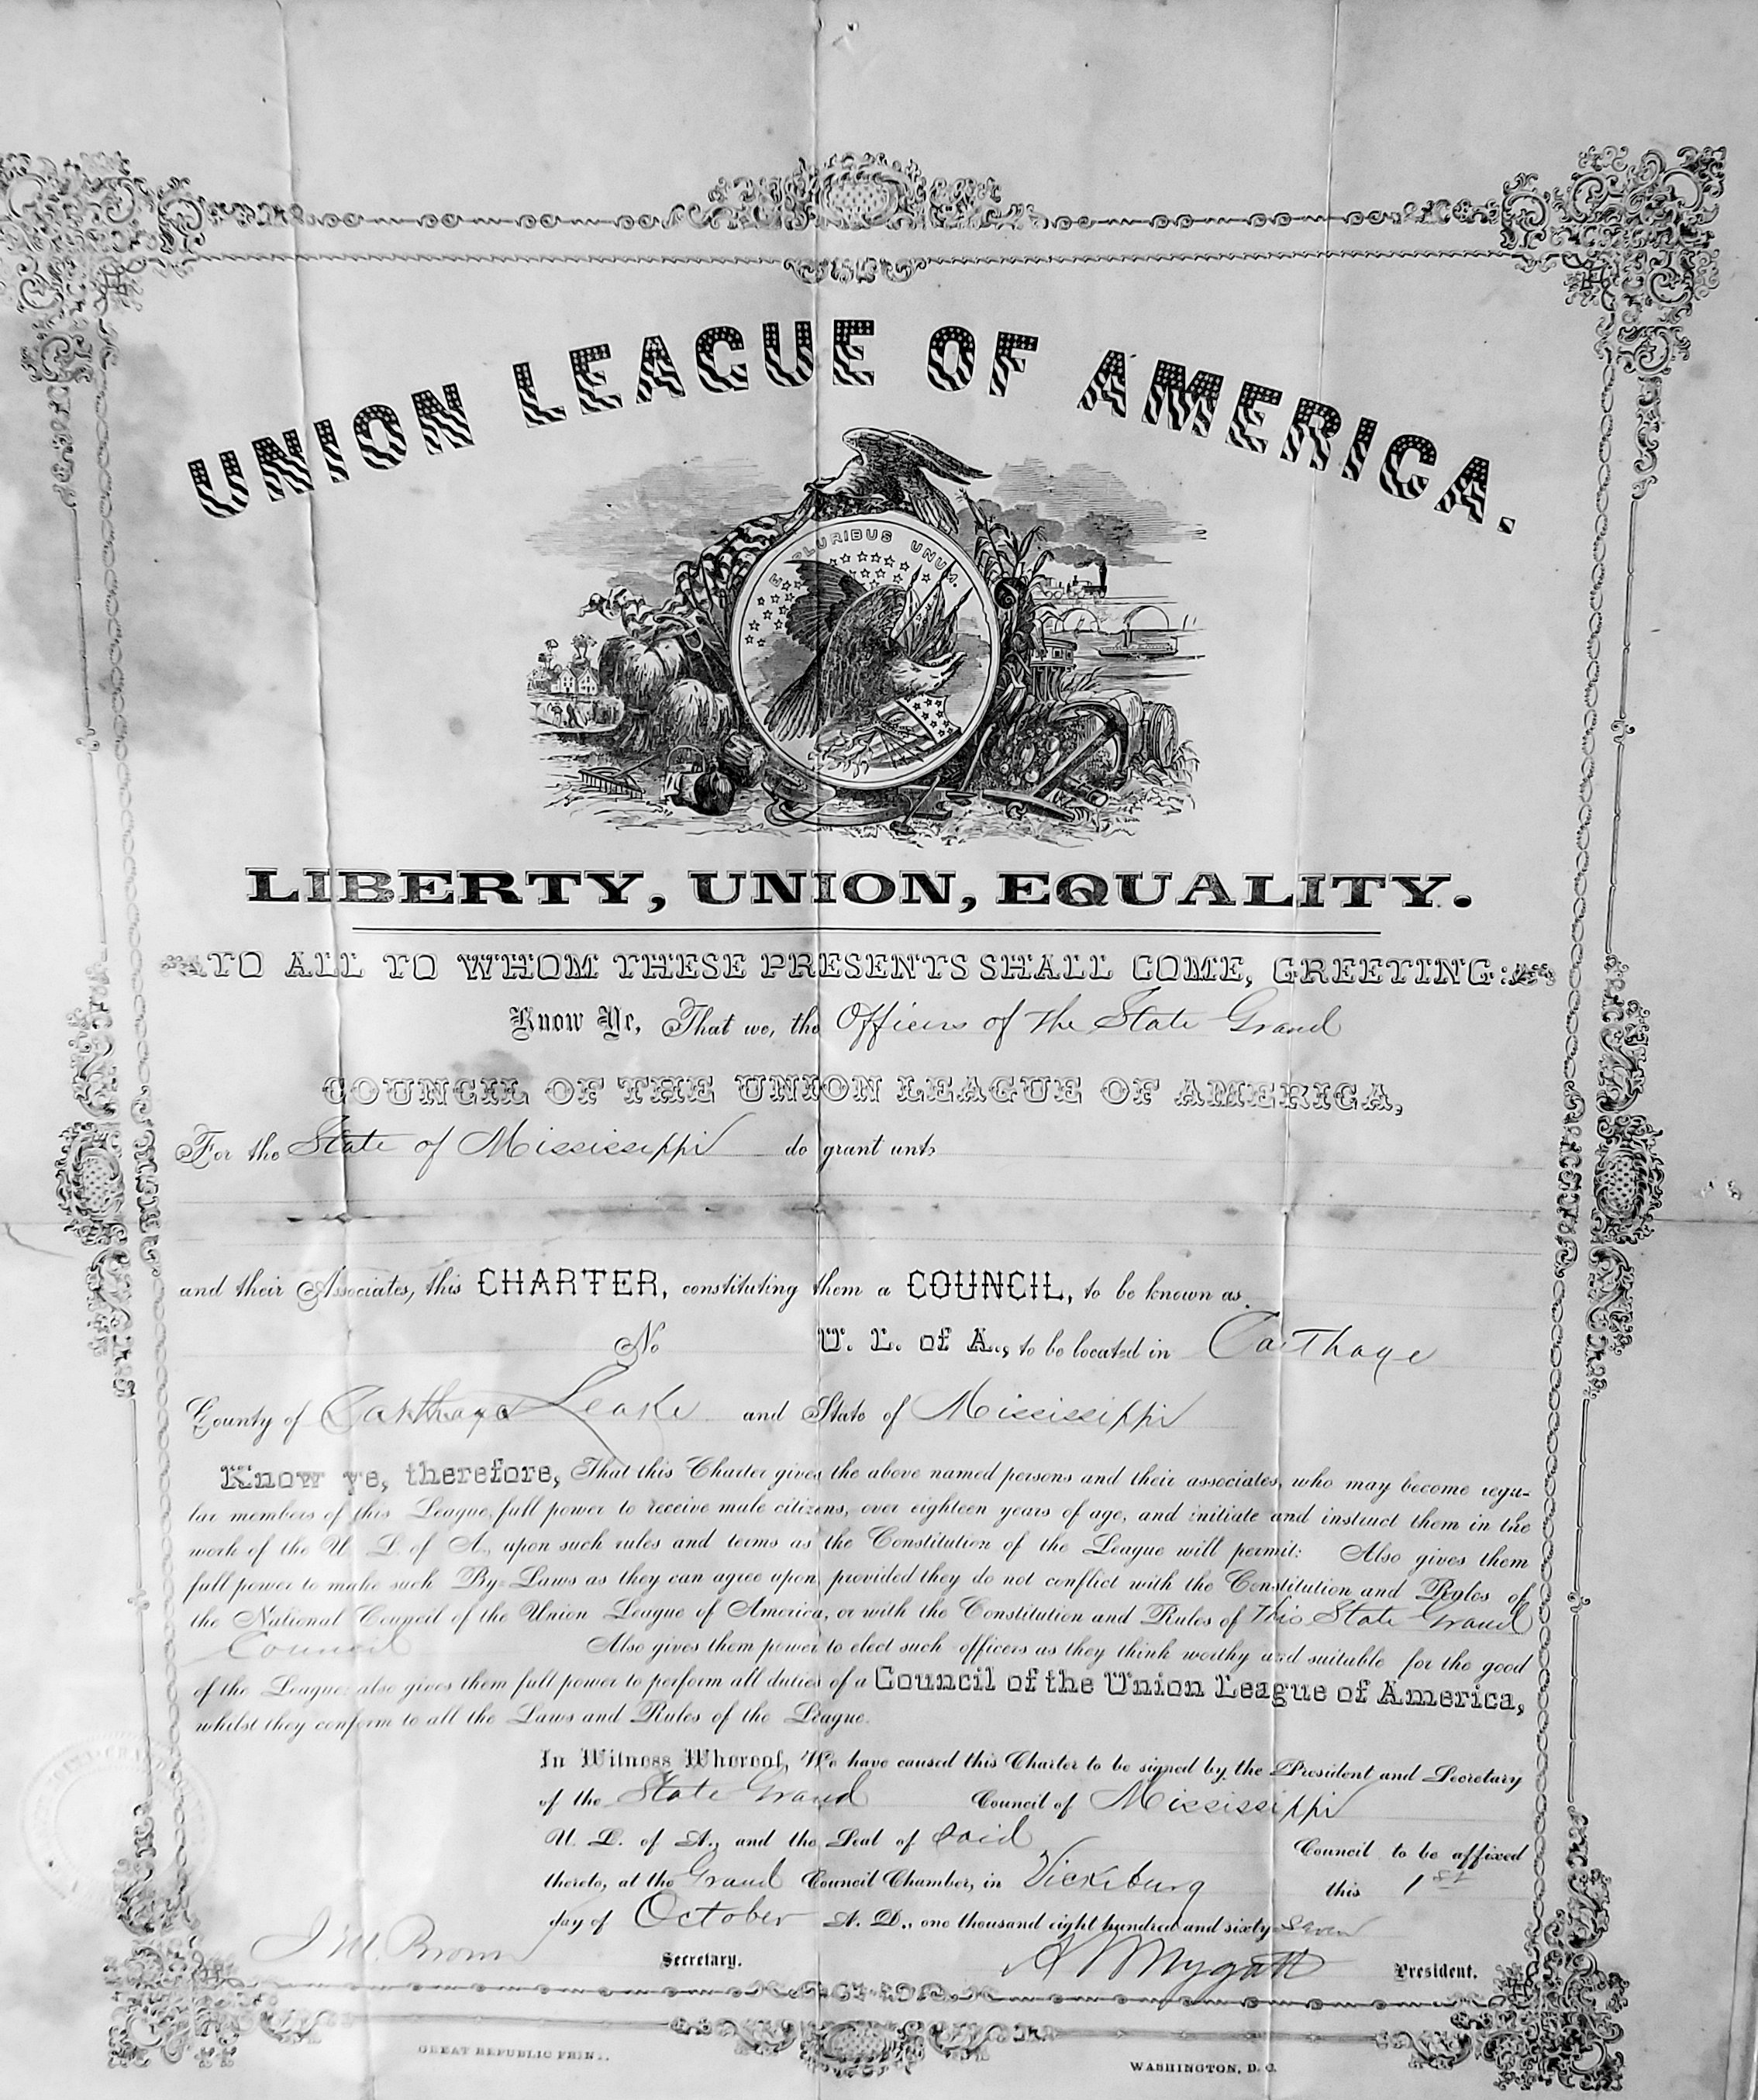 UNION LEAGUE OF AMERICA.
E PLURIBUS UNUM.
LIBERTY, UNION, EQUALITY.
TO ALL TO WHOM THESE PRESENTS SHALL COME, GREETING:
Know Ye, That we, the Officers of the State Grand
COUNCIL OF THE UNION LEAGUE OF AMERICA,
For the State of Mississippi do grant unto
and their Associates, this CHARTER, constituting them a COUNCIL, to be known as
No U. L. of A., to be located in Carthage
County of Carthage Leake and State of Mississippi
Know ye, therefore, That this Charter gives the above named persons and their associates, who may become regu-
lar members of this League, full power to receive male citizens, over eighteen years of age, and initiate and instruct them in the
work of the U. L. of A., upon such rules and terms as the Constitution of the League will permit: Also gives them
full power to make such By-Laws as they can agree upon provided they do not conflict with the Constitution and Rules of
the National Council of the Union League of America, or with the Constitution and Rules of this State Grand
Council Also gives them power to elect such officers as they think worthy and suitable for the good
of the League; also gives them full power to perform all duties of a Council of the Union League of America,
whilst they conform to all the Laws and Rules of the League.
In Witness Whereof, We have caused this Charter to be signed by the President and Secretary
of the State Grand Council of Mississippi
U. L. of A., and the Seal of said Council to be affixed
thereto, at the Grand Council Chamber, in Vicksburg this 1st
day of October A. D., one thousand eight hundred and sixty seven
J M. Brown Secretary. A Mygatt President.
GREAT REPUBLIC PRINT. WASHINGTON, D. C.